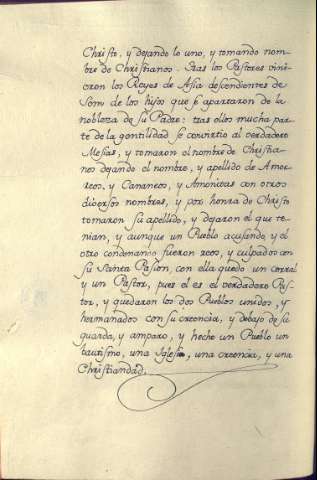 Christo, y dejando lo uno, y tomando nom-
bre de Christianos. tras los Pastores vini-
eron los Reyes de Asia descendientes de
Sem de los hijos que se apartaron de la
nobleza de su Padre: tras ellos mucha par-
te de la gentilidad se convirtio al verdadero
Mesias, y tomaron el nombre de Christia-
nos dejando el nombre, y apellido de Amor-
reos, y Cananeos, y Amonitas con otros
diversos nombres, y por honra de Christo
tomaron su apellido, y dejaron el que te-
nian, y aunque un Pueblo acusando, y el
otro condenando fueron reos, y culpados con
su Santa Pasion, con ella quedo un corral
y un Pastor, pues el es el verdadero Pas-
tor, y quedaron los dos Pueblos unidos, y
hermanados con su creencia, y debajo de su
guarda, y amparo, y hecho un Pueblo un
bautismo, una Iglesia, una creencia, y una
Christiandad.